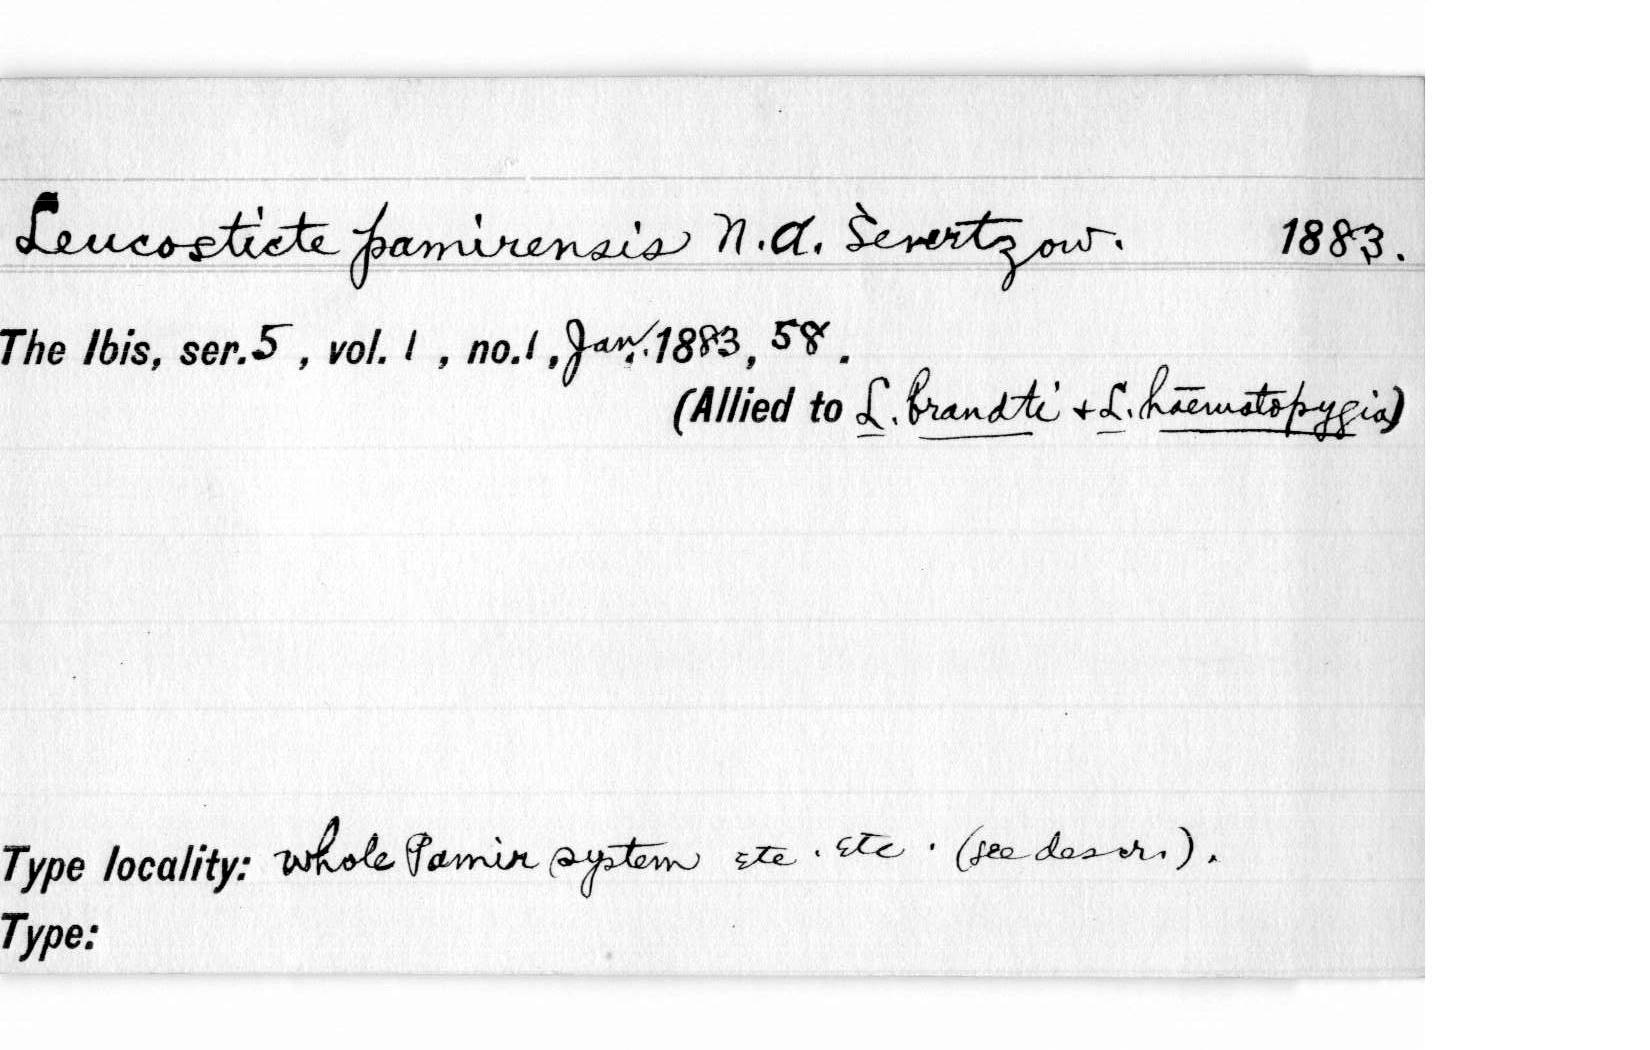 Leucosticte pamirensis N.A. Severtzow. 1883.
The Ibis, ser. 5, vol. 1, no. 1, Jan. 1883, 58.
(Allied to L. brandti + L. hæmatopygia)
Type locality: whole Pamir system etc. etc. (see descr.).
Type: